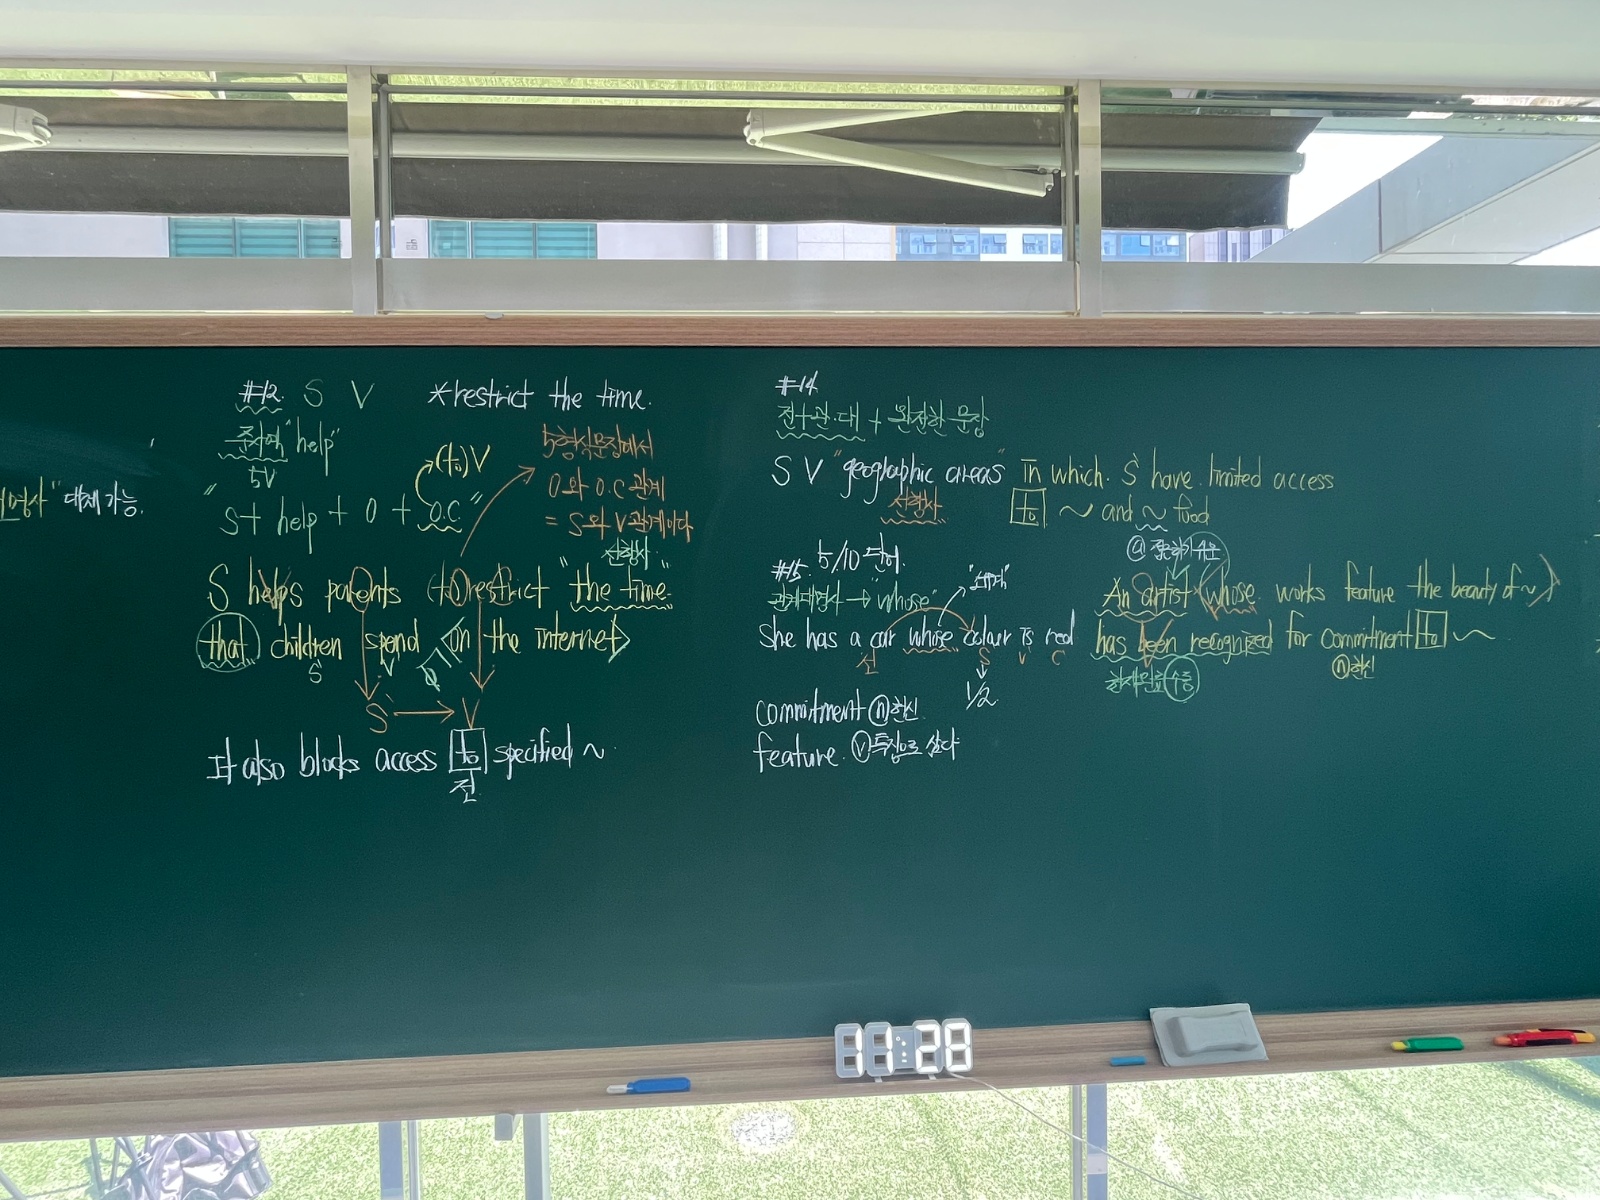 대체 가능.
#12. S V *restrict the time.
준사역 "help"
5V
(to)V
"S + help + O + O.C"
5형식문장에서
O와 O.C 관계
= S와 V관계이다
선행사
S helps parents (to) restrict "the time"
that children spend on the internet
S V
S → V
It also blocks access to specified ~
전
#14
전+관.대 + 완전한 문장
S V "geographic areas" in which. S have limited access
선행사
to ~ and ~ food
#15. 5/10 단어.
관계대명사 → "whose"
She has a car whose colour is red
선 S V C
1/2
commitment ⓝ헌신
feature. ⓥ특징으로 삼다
An artist (whose works feature the beauty of ~)
has been recognized for commitment to ~
ⓝ헌신
현재완료수동
11:28